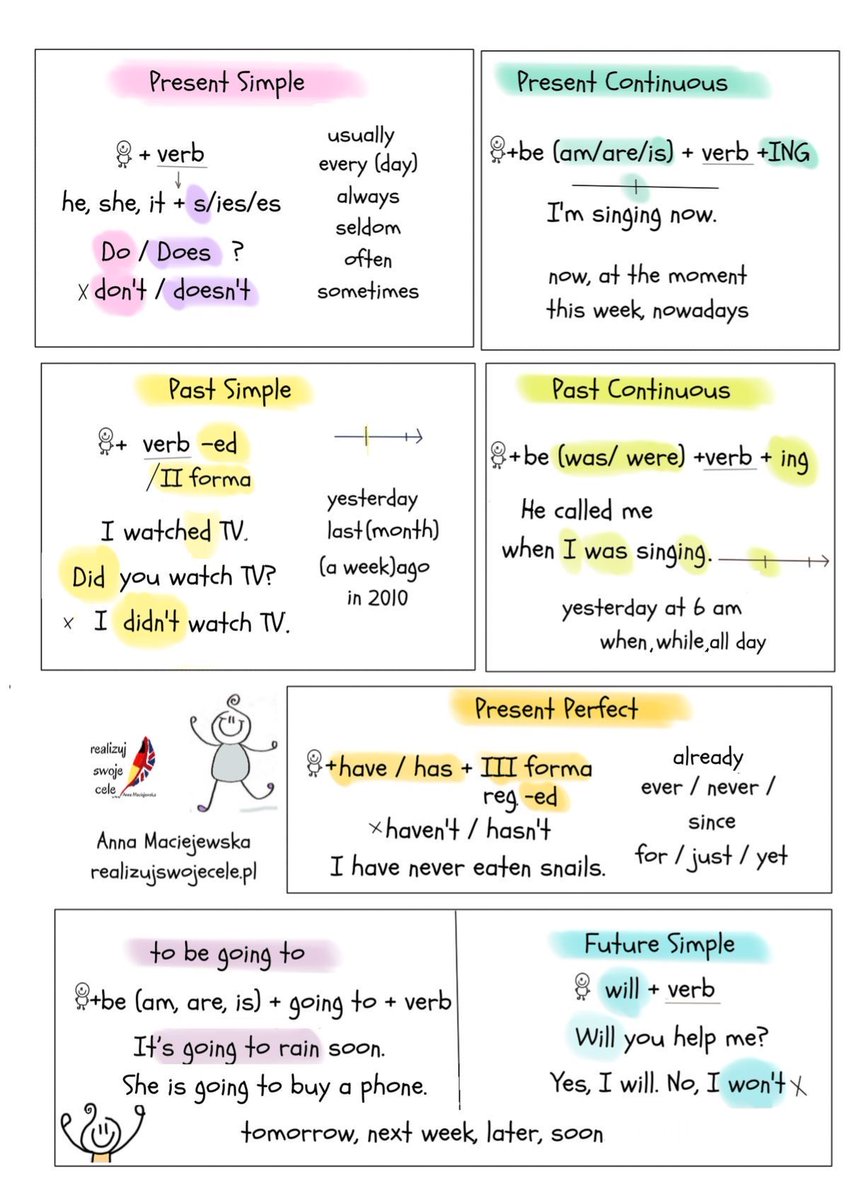 Present Simple
+ verb
he, she, it + s/ies/es
Do / Does ?
x don't / doesn't
usually
every (day)
always
seldom
often
sometimes
Present Continuous
+be (am/are/is) + verb +ING
I'm singing now.
now, at the moment
this week, nowadays
Past Simple
+ verb -ed
/II forma
I watched TV.
Did you watch TV?
x I didn't watch TV.
yesterday
last(month)
(a week)ago
in 2010
Past Continuous
+be (was/ were) +verb + ing
He called me
when I was singing.
yesterday at 6 am
when,while,all day
realizuj
swoje
cele
Anna Maciejewska
Anna Maciejewska
realizujswojecele.pl
Present Perfect
+have / has + III forma
reg -ed
x haven't / hasn't
I have never eaten snails.
already
ever / never /
since
for / just / yet
to be going to
+be (am, are, is) + going to + verb
It's going to rain soon.
She is going to buy a phone.
Future Simple
will + verb
Will you help me?
Yes, I will. No, I won't x
tomorrow, next week, later, soon